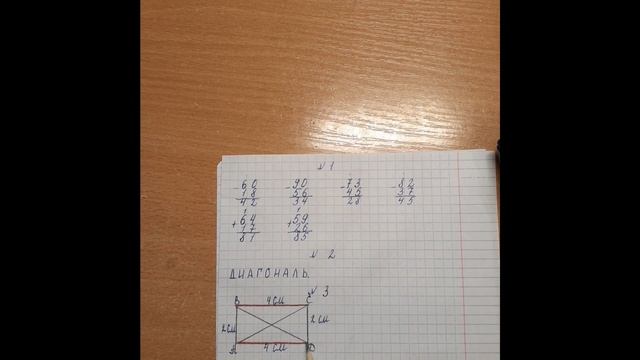 № 1
-60 -90 -73 -82
18 56 45 37
42 34 28 45
+64 +59
17 26
81 85
№ 2
ДИАГОНАЛЬ.
№ 3
B 4 см C
2 см 2 см
A 4 см D